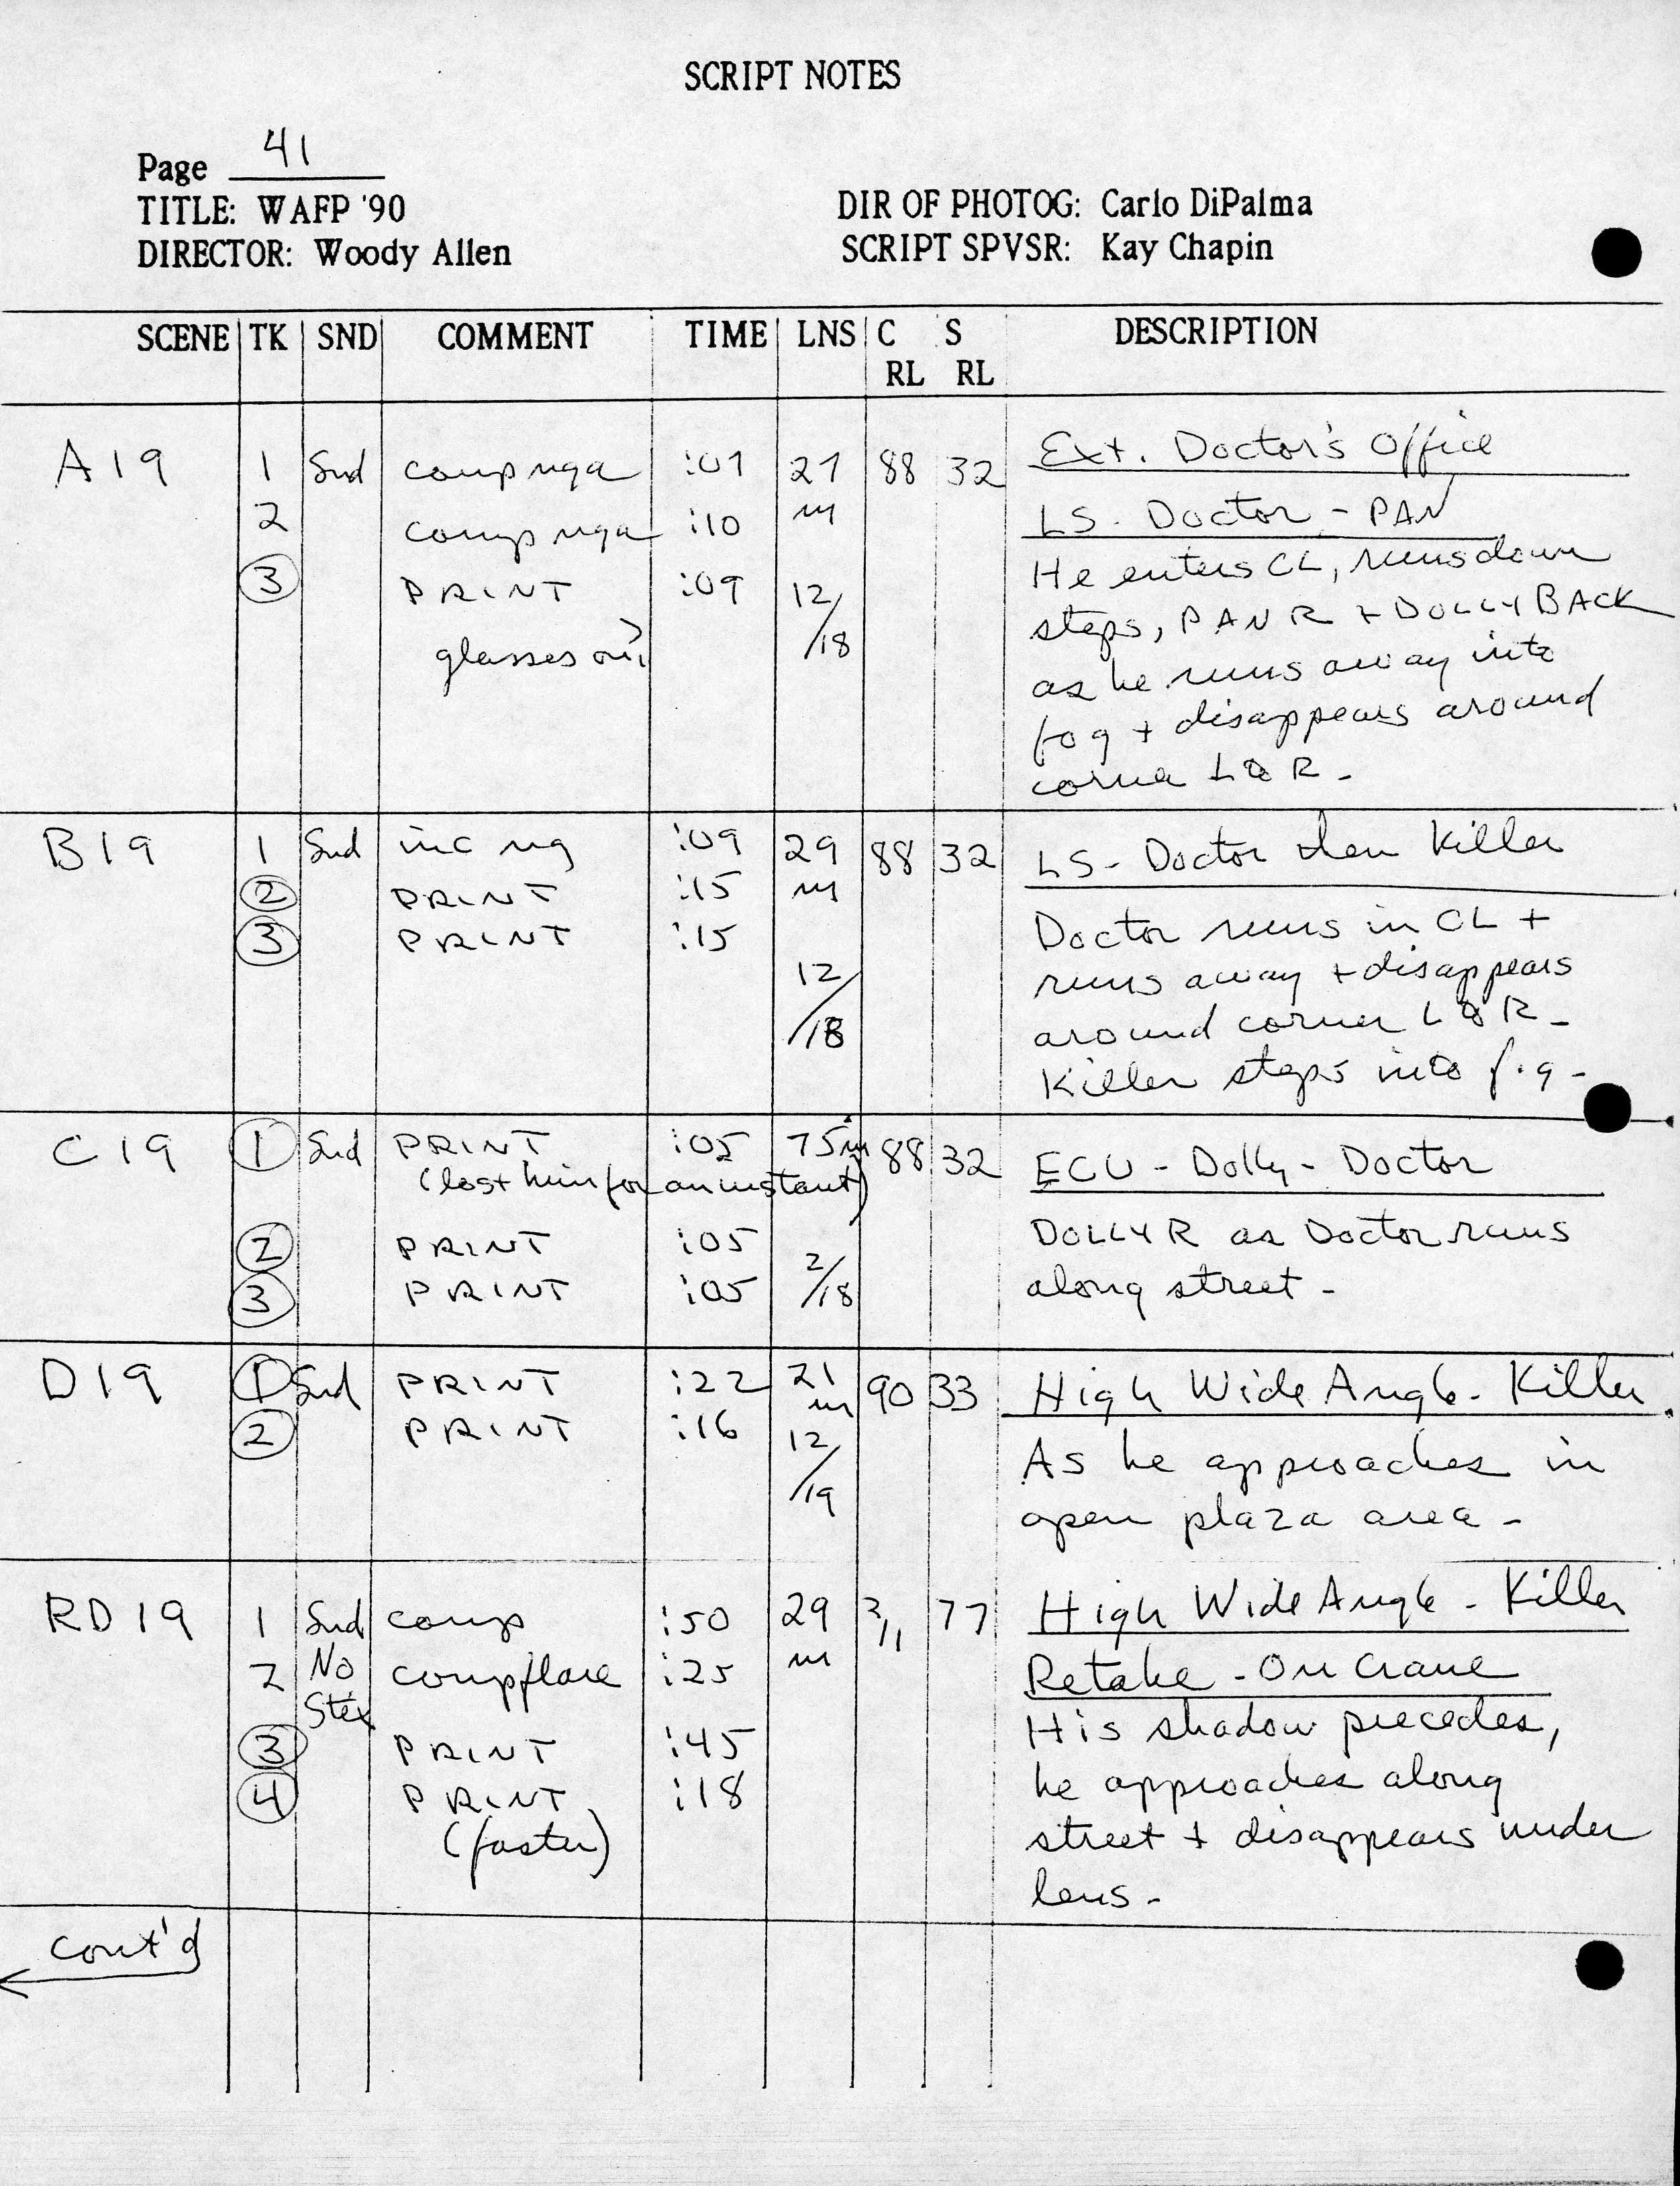 SCRIPT NOTES
Page 41
TITLE: WAFP '90
DIRECTOR: Woody Allen
DIR OF PHOTOG: Carlo DiPalma
SCRIPT SPVSR: Kay Chapin
SCENE TK SND COMMENT TIME LNS C RL S RL DESCRIPTION
A19 1 Snd comp nga :07 27 88 32 Ext. Doctor's Office
2 comp nga :10 m LS. Doctor - PAN
He enters CL, runs down
3 PRINT :09 12/18 steps, PAN R + DOLLY BACK
glasses on? as he runs away into
fog + disappears around
corner L to R -
B19 1 Snd inc ng :09 29 88 32 LS - Doctor then Killer
2 PRINT :15 m
3 PRINT :15 Doctor runs in CL +
12/18 runs away + disappears
around corner L to R -
Killer steps into f.g -
C19 1 Snd PRINT :05 75m 88 32 ECU - Dolly - Doctor
(lost him for an instant)
2 PRINT :05 DOLLY R as Doctor runs
3 PRINT :05 2/18 along street -
D19 1 Snd PRINT :22 21 90 33 High Wide Angle - Killer
m
2 PRINT :16 12/19 As he approaches in
open plaza area -
RD19 1 Snd comp :50 29 77 High Wide Angle - Killer
2 No comp flare :25 m Retake - On Crane
His shadow precedes,
3 PRINT :45
4 PRINT :18 he approaches along
(faster) street + disappears under
lens -
cont'd